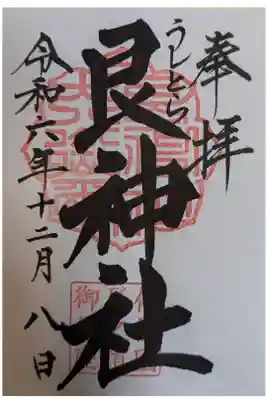 奉拝
うしとら
艮神社
令和六年十二月八日